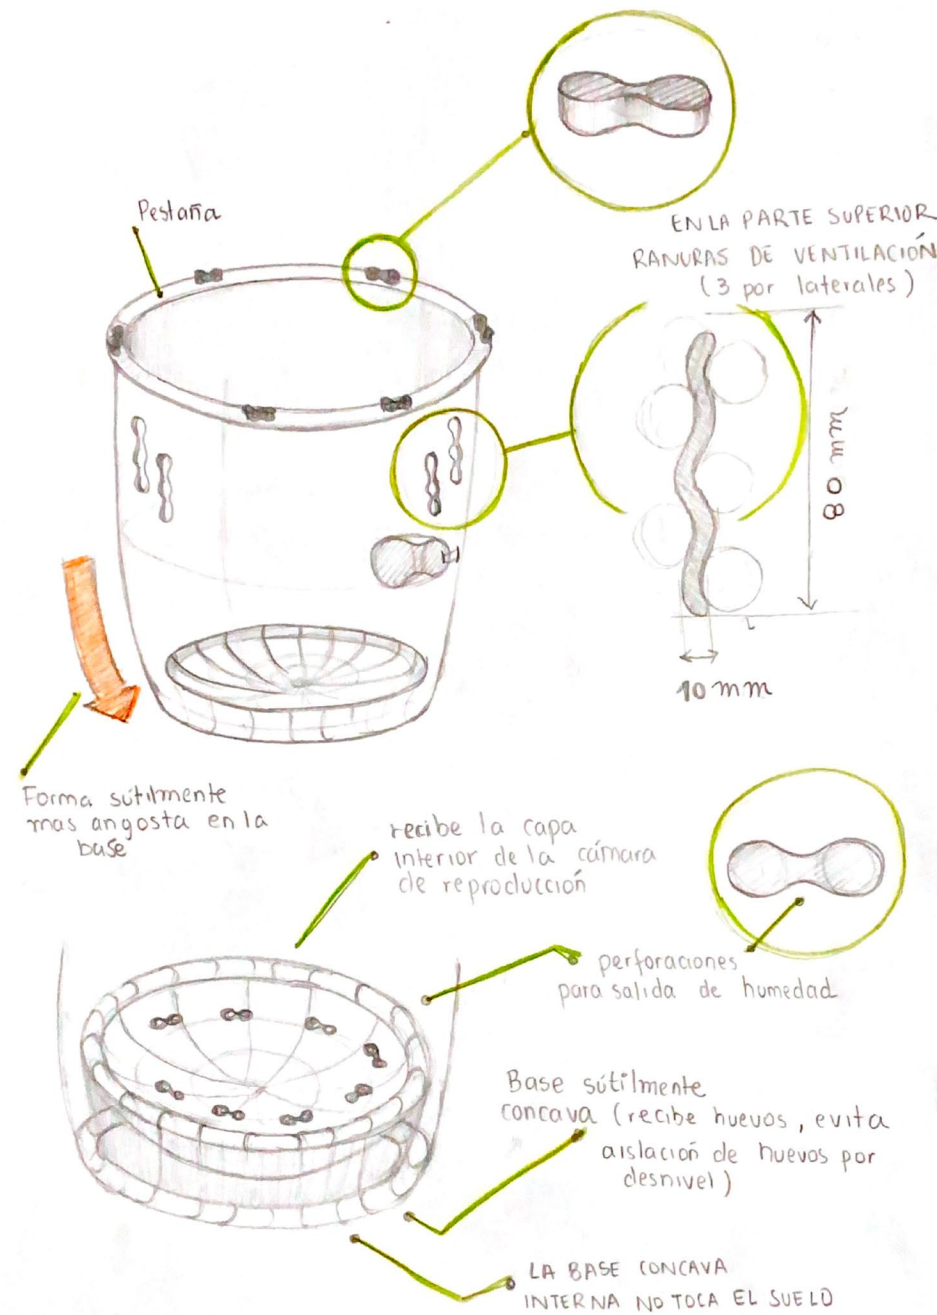 Pestaña
EN LA PARTE SUPERIOR
RANURAS DE VENTILACIÓN
(3 por laterales)
80 mm
10 mm
Forma sútilmente
mas angosta en la
base
recibe la capa
interior de la cámara
de reproducción
perforaciones
para salida de humedad
Base sútilmente
concava (recibe huevos, evita
aislación de huevos por
desnivel)
LA BASE CONCAVA
INTERNA NO TOCA EL SUELO